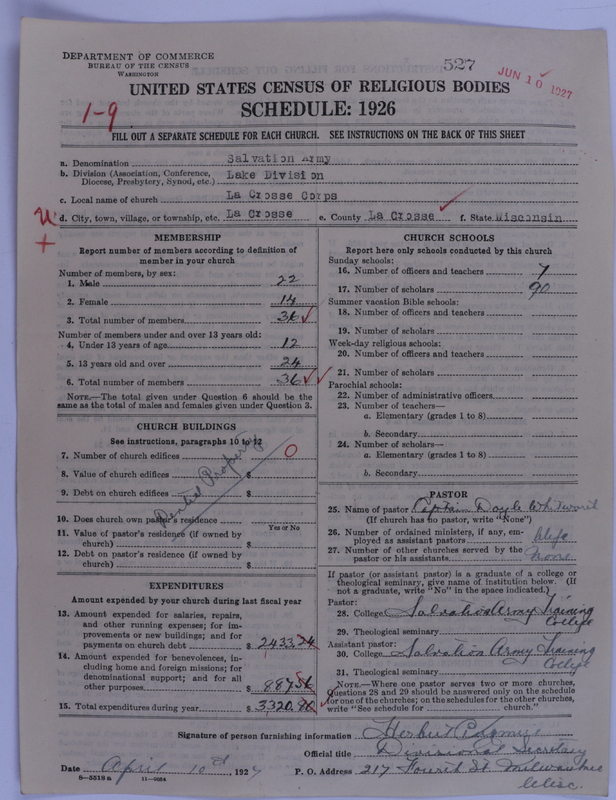 DEPARTMENT OF COMMERCE
BUREAU OF THE CENSUS
WASHINGTON
527
JUN 10 1927
UNITED STATES CENSUS OF RELIGIOUS BODIES
SCHEDULE: 1926
1-9
FILL OUT A SEPARATE SCHEDULE FOR EACH CHURCH. SEE INSTRUCTIONS ON THE BACK OF THIS SHEET
a. Denomination Salvation Army
b. Division (Association, Conference, Diocese, Presbytery, Synod, etc.) Lake Division
c. Local name of church La Crosse Corps
d. City, town, village, or township, etc. La Crosse e. County La Crosse f. State Wisconsin
MEMBERSHIP
Report number of members according to definition of
member in your church
Number of members, by sex:
1. Male 22
2. Female 14
3. Total number of members 36
Number of members under and over 13 years old:
4. Under 13 years of age 12
5. 13 years old and over 24
6. Total number of members 36
NOTE.—The total given under Question 6 should be
same as the total of males and females given under Question 3.
CHURCH BUILDINGS
See instructions, paragraphs 10 to 12
7. Number of church edifices 0
8. Value of church edifices $
9. Debt on church edifices $
Property
10. Does church own pastor's residence
Yes or No
11. Value of pastor's residence (if owned by
church) $
12. Debt on pastor's residence (if owned by
church) $
EXPENDITURES
Amount expended by your church during last fiscal year
13. Amount expended for salaries, repairs,
and other running expenses; for im-
provements or new buildings; and for
payments on church debt $ 2433.24
14. Amount expended for benevolences, in-
cluding home and foreign missions; for
denominational support; and for all
other purposes $ 887.56
15. Total expenditures during year $ 3320.80
CHURCH SCHOOLS
Report here only schools conducted by this church
Sunday schools:
16. Number of officers and teachers 7
17. Number of scholars 90
Summer vacation Bible schools:
18. Number of officers and teachers
19. Number of scholars
Week-day religious schools:
20. Number of officers and teachers
21. Number of scholars
Parochial schools:
22. Number of administrative officers
23. Number of teachers—
a. Elementary (grades 1 to 8)
b. Secondary
24. Number of scholars—
a. Elementary (grades 1 to 8)
b. Secondary
PASTOR
25. Name of pastor Captain Doyle Whitworth
(If church has no pastor, write "None")
26. Number of ordained ministers, if any, em-
ployed as assistant pastors Wife
27. Number of other churches served by the
pastor or his assistants None
If pastor (or assistant pastor) is a graduate of a college or
theological seminary, give name of institution below. (If
not a graduate, write "No" in the space indicated.)
Pastor:
28. College Salvation Army Training
College
29. Theological seminary
Assistant pastor:
30. College Salvation Army Training
College
31. Theological seminary
NOTE.—Where one pastor serves two or more churches,
Questions 28 and 29 should be answered only on the schedule
for one of the churches; on the schedules for the other churches,
write "See schedule for church."
Signature of person furnishing information Herbert
Official title Divisional Secretary
Date April 10th, 1927 P. O. Address 217 Fourth St. Milwaukee
Wisc.
8-5518a 11-9054